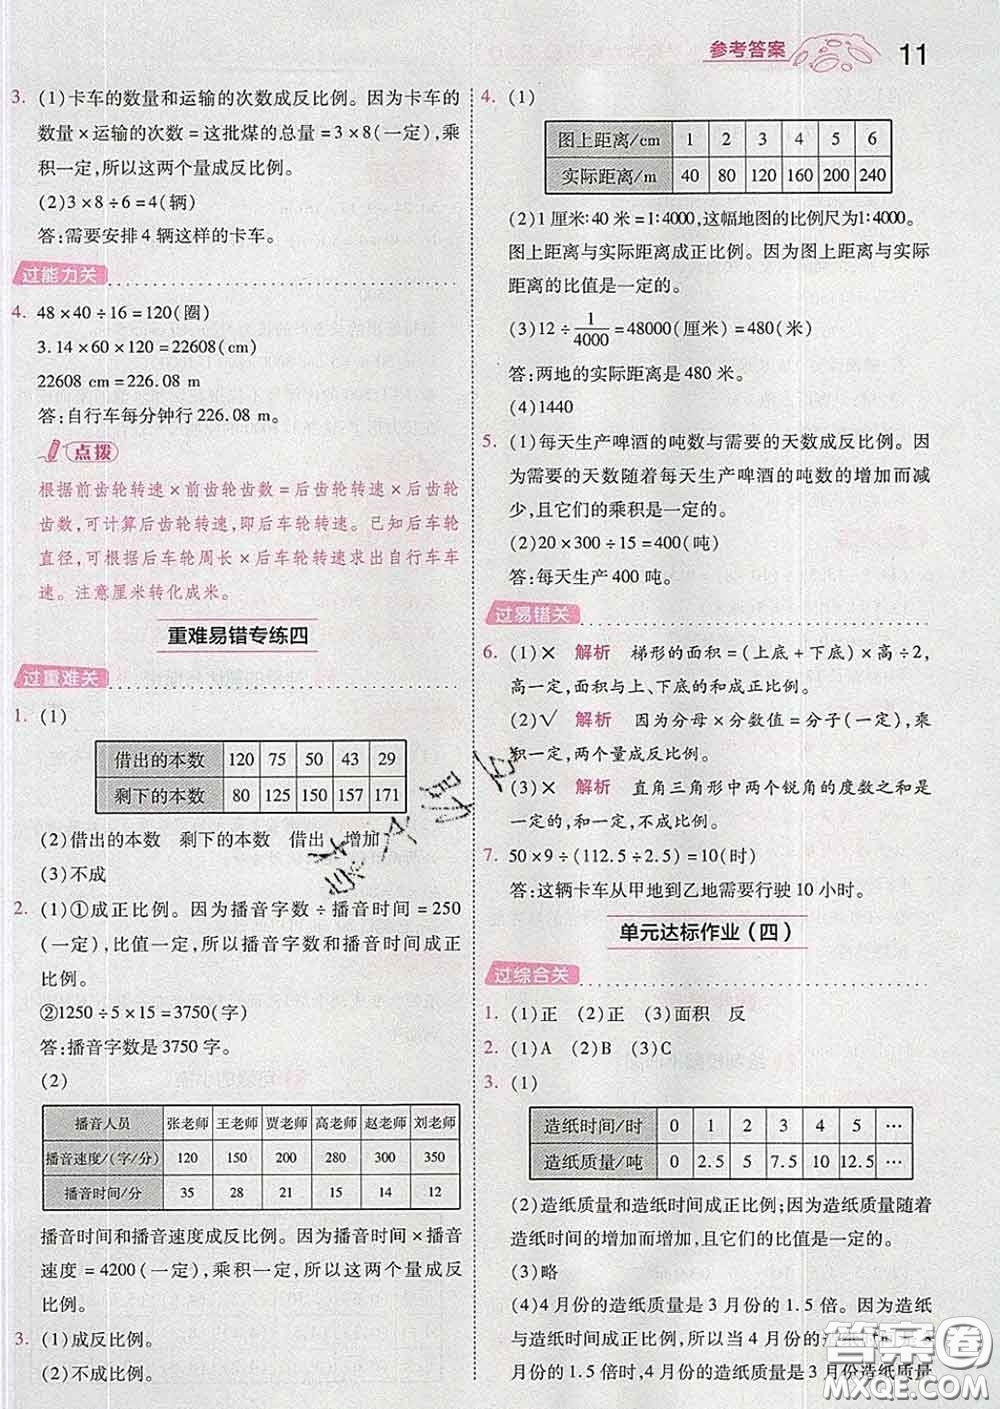 参考答案 11
3. (1)卡车的数量和运输的次数成反比例。因为卡车的
数量×运输的次数=这批煤的总量=3×8(一定),乘
积一定,所以这两个量成反比例。
(2)3×8÷6=4(辆)
答:需要安排4辆这样的卡车。
过能力关
4. 48×40÷16=120(圈)
3.14×60×120=22608(cm)
22608 cm=226.08 m
答:自行车每分钟行226.08 m。
点拨
根据前齿轮转速×前齿轮齿数=后齿轮转速×后齿轮
齿数,可计算后齿轮转速,即后车轮转速。已知后车轮
直径,可根据后车轮周长×后车轮转速求出自行车车
速。注意厘米转化成米。
重难易错专练四
过重难关
1. (1)
借出的本数 120 75 50 43 29
剩下的本数 80 125 150 157 171
(2)借出的本数 剩下的本数 借出 增加
(3)不成
2. (1)①成正比例。因为播音字数÷播音时间=250
(一定),比值一定,所以播音字数和播音时间成正
比例。
②1250÷5×15=3750(字)
答:播音字数是3750字。
(2)
播音人员 张老师 王老师 贾老师 高老师 赵老师 刘老师
播音速度/(字/分) 120 150 200 280 300 350
播音时间/分 35 28 21 15 14 12
播音时间和播音速度成反比例。因为播音时间×播音
速度=4200(一定),乘积一定,所以这两个量成反
比例。
3. (1)成反比例。
(2)不成比例。
4. (1)
图上距离/cm 1 2 3 4 5 6
实际距离/m 40 80 120 160 200 240
(2)1厘米:40米=1:4000,这幅地图的比例尺为1:4000。
图上距离与实际距离成正比例。因为图上距离与实际
距离的比值是一定的。
(3)12÷1/4000=48000(厘米)=480(米)
答:两地的实际距离是480米。
(4)1440
5. (1)每天生产啤酒的吨数与需要的天数成反比例。因
为需要的天数随着每天生产啤酒的吨数的增加而减
少,且它们的乘积是一定的。
(2)20×300÷15=400(吨)
答:每天生产400吨。
过易错关
6. (1)× 解析 梯形的面积=(上底+下底)×高÷2,
高一定,面积与上、下底的和成正比例。
(2)√ 解析 因为分母×分数值=分子(一定),乘
积一定,两个量成反比例。
(3)× 解析 直角三角形中两个锐角的度数之和是
一定的,和一定,不成比例。
7. 50×9÷(112.5÷2.5)=10(时)
答:这辆卡车从甲地到乙地需要行驶10小时。
单元达标作业(四)
过综合关
1. (1)正 (2)正 (3)面积 反
2. (1)A (2)B (3)C
3. (1)
造纸时间/时 0 1 2 3 4 5 …
造纸质量/吨 0 2.5 5 7.5 10 12.5 …
(2)造纸质量和造纸时间成正比例;因为造纸质量随着
造纸时间的增加而增加,且它们的比值是一定的。
(3)略
(4)4月份的造纸质量是3月份的1.5倍。因为造纸质
量与造纸时间成正比例,所以当4月份的造纸时间是3
月份的1.5倍时,4月份的造纸质量是3月份造纸质量
答案圈
MXQE.COM